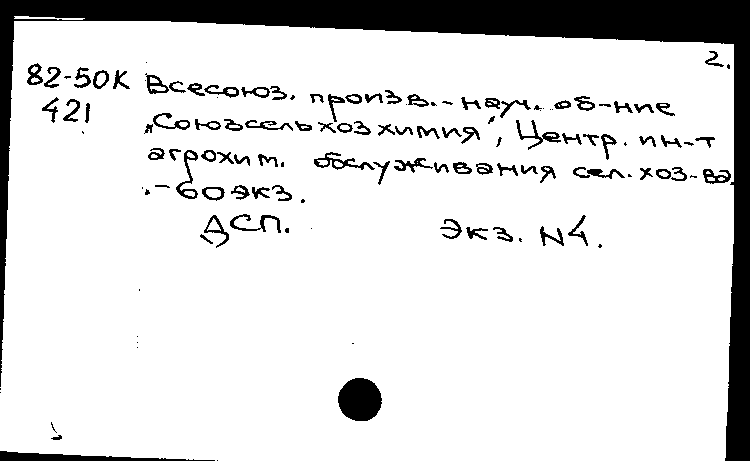 2.
82-50К Всесоюз. произв.-науч. об-ние
421 „Союзсельхозхимия", Центр. ин-т
агрохим. обслуживания сел. хоз-ва.
.-60 экз.
ДСП. Экз. N4.